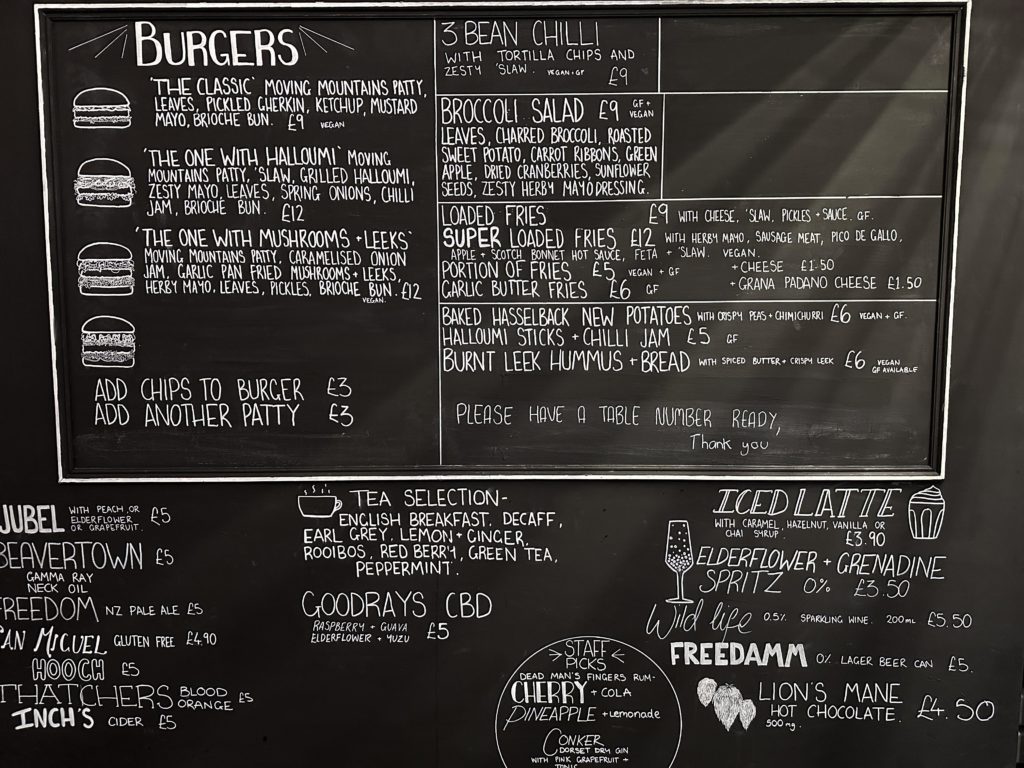 BURGERS
'THE CLASSIC' MOVING MOUNTAINS PATTY,
LEAVES, PICKLED GHERKIN, KETCHUP, MUSTARD
MAYO, BRIOCHE BUN. £9 VEGAN
'THE ONE WITH HALLOUMI' MOVING
MOUNTAINS PATTY, 'SLAW, GRILLED HALLOUMI,
ZESTY MAYO, LEAVES, SPRING ONIONS, CHILLI
JAM, BRIOCHE BUN. £12
'THE ONE WITH MUSHROOMS + LEEKS'
MOVING MOUNTAINS PATTY, CARAMELISED ONION
JAM, GARLIC PAN FRIED MUSHROOMS + LEEKS,
HERBY MAYO, LEAVES, PICKLES, BRIOCHE BUN. £12
VEGAN.
ADD CHIPS TO BURGER £3
ADD ANOTHER PATTY £3
3 BEAN CHILLI
WITH TORTILLA CHIPS AND
ZESTY 'SLAW. VEGAN + GF £9
BROCCOLI SALAD £9 GF + VEGAN
LEAVES, CHARRED BROCCOLI, ROASTED
SWEET POTATO, CARROT RIBBONS, GREEN
APPLE, DRIED CRANBERRIES, SUNFLOWER
SEEDS, ZESTY HERBY MAYO DRESSING.
LOADED FRIES £9 WITH CHEESE, 'SLAW, PICKLES + SAUCE. GF.
SUPER LOADED FRIES £12 WITH HERBY MAYO, SAUSAGE MEAT, PICO DE GALLO,
APPLE + SCOTCH BONNET HOT SAUCE, FETA + 'SLAW. VEGAN.
PORTION OF FRIES £5 VEGAN + GF +CHEESE £1.50
GARLIC BUTTER FRIES £6 GF +GRANA PADANO CHEESE £1.50
BAKED HASSELBACK NEW POTATOES WITH CRISPY PEAS + CHIMICHURRI £6 VEGAN + GF.
HALLOUMI STICKS + CHILLI JAM £5 GF
BURNT LEEK HUMMUS + BREAD WITH SPICED BUTTER + CRISPY LEEK £6 VEGAN
GF AVAILABLE
PLEASE HAVE A TABLE NUMBER READY,
Thank you
JUBEL WITH PEACH, OR
ELDERFLOWER
OR GRAPEFRUIT. £5
BEAVERTOWN £5
GAMMA RAY
NECK OIL
FREEDOM NZ PALE ALE £5
SAN MIGUEL GLUTEN FREE £4.90
HOOCH £5
THATCHERS BLOOD
ORANGE £5
INCH'S CIDER £5
TEA SELECTION-
ENGLISH BREAKFAST. DECAFF,
EARL GREY. LEMON + GINGER,
ROOIBOS, RED BERRY, GREEN TEA,
PEPPERMINT.
GOODRAYS CBD
RASPBERRY + GUAVA
ELDERFLOWER + YUZU £5
STAFF
PICKS
DEAD MAN'S FINGERS RUM-
CHERRY + COLA
PINEAPPLE + lemonade
CONKER
DORSET DRY GIN
WITH PINK GRAPEFRUIT +
TONIC
ICED LATTE
WITH CARAMEL, HAZELNUT, VANILLA OR
CHAI SYRUP. £3.90
ELDERFLOWER + GRENADINE
SPRITZ 0% £3.50
Wild life 0.5% SPARKLING WINE. 200ML £5.50
FREEDAMM 0% LAGER BEER CAN £5.
LION'S MANE
HOT CHOCOLATE. £4.50
500mg.